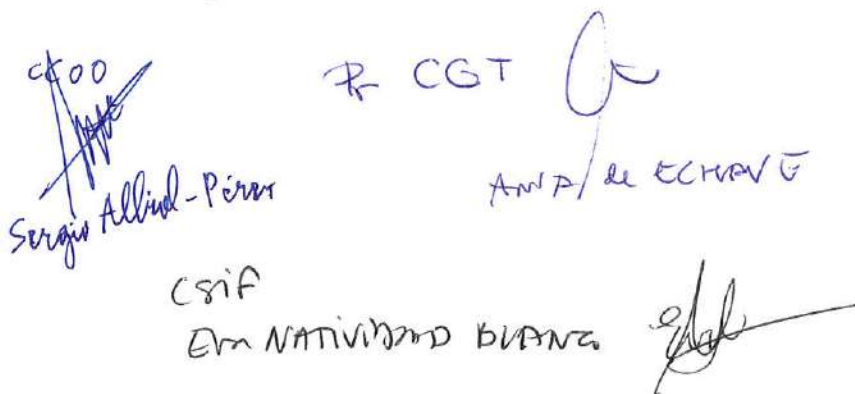 CCOO
Sergio Albiol-Pérez
Pr CGT
ANA de ECHAVE
CSIF
Eva NATIVIDAD BLANCO